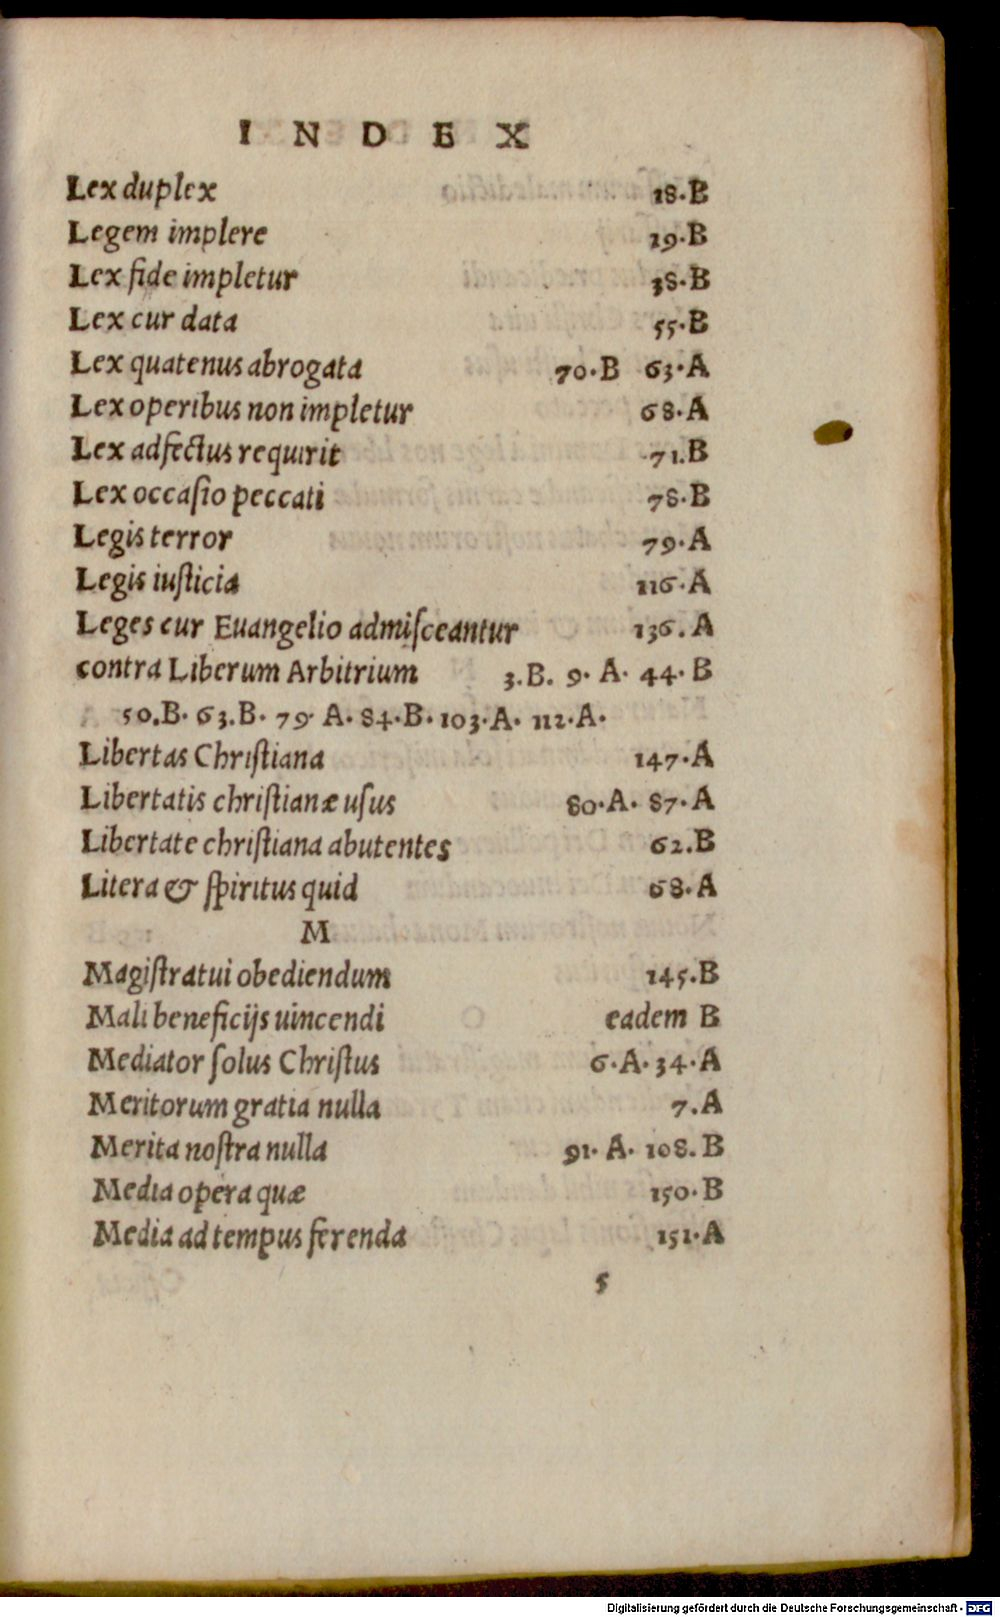 INDEX
Lex duplex 18.B
Legem implere 19.B
Lex fide impletur 38.B
Lex cur data 55.B
Lex quatenus abrogata 70.B 63.A
Lex operibus non impletur 68.A
Lex adfectus requirit 71.B
Lex occaſio peccati 78.B
Legis terror 79.A
Legis iuſticia 116.A
Leges cur Euangelio admiſceantur 136.A
contra Liberum Arbitrium 3.B. 9. A. 44. B
50.B. 63.B. 79 A. 84.B. 103.A. 112.A.
Libertas Chriſtiana 147.A
Libertatis chriſtianæ uſus 80.A. 87.A
Libertate chriſtiana abutentes 62.B
Litera & ſpiritus quid 68.A
M
Magiſtratui obediendum 145.B
Mali beneficijs uincendi eadem B
Mediator ſolus Chriſtus 6.A. 34.A
Meritorum gratia nulla 7.A
Merita noſtra nulla 91. A. 108. B
Media opera quæ 150.B
Media ad tempus ferenda 151.A
5
Digitalisierung gefördert durch die Deutsche Forschungsgemeinschaft - DFG